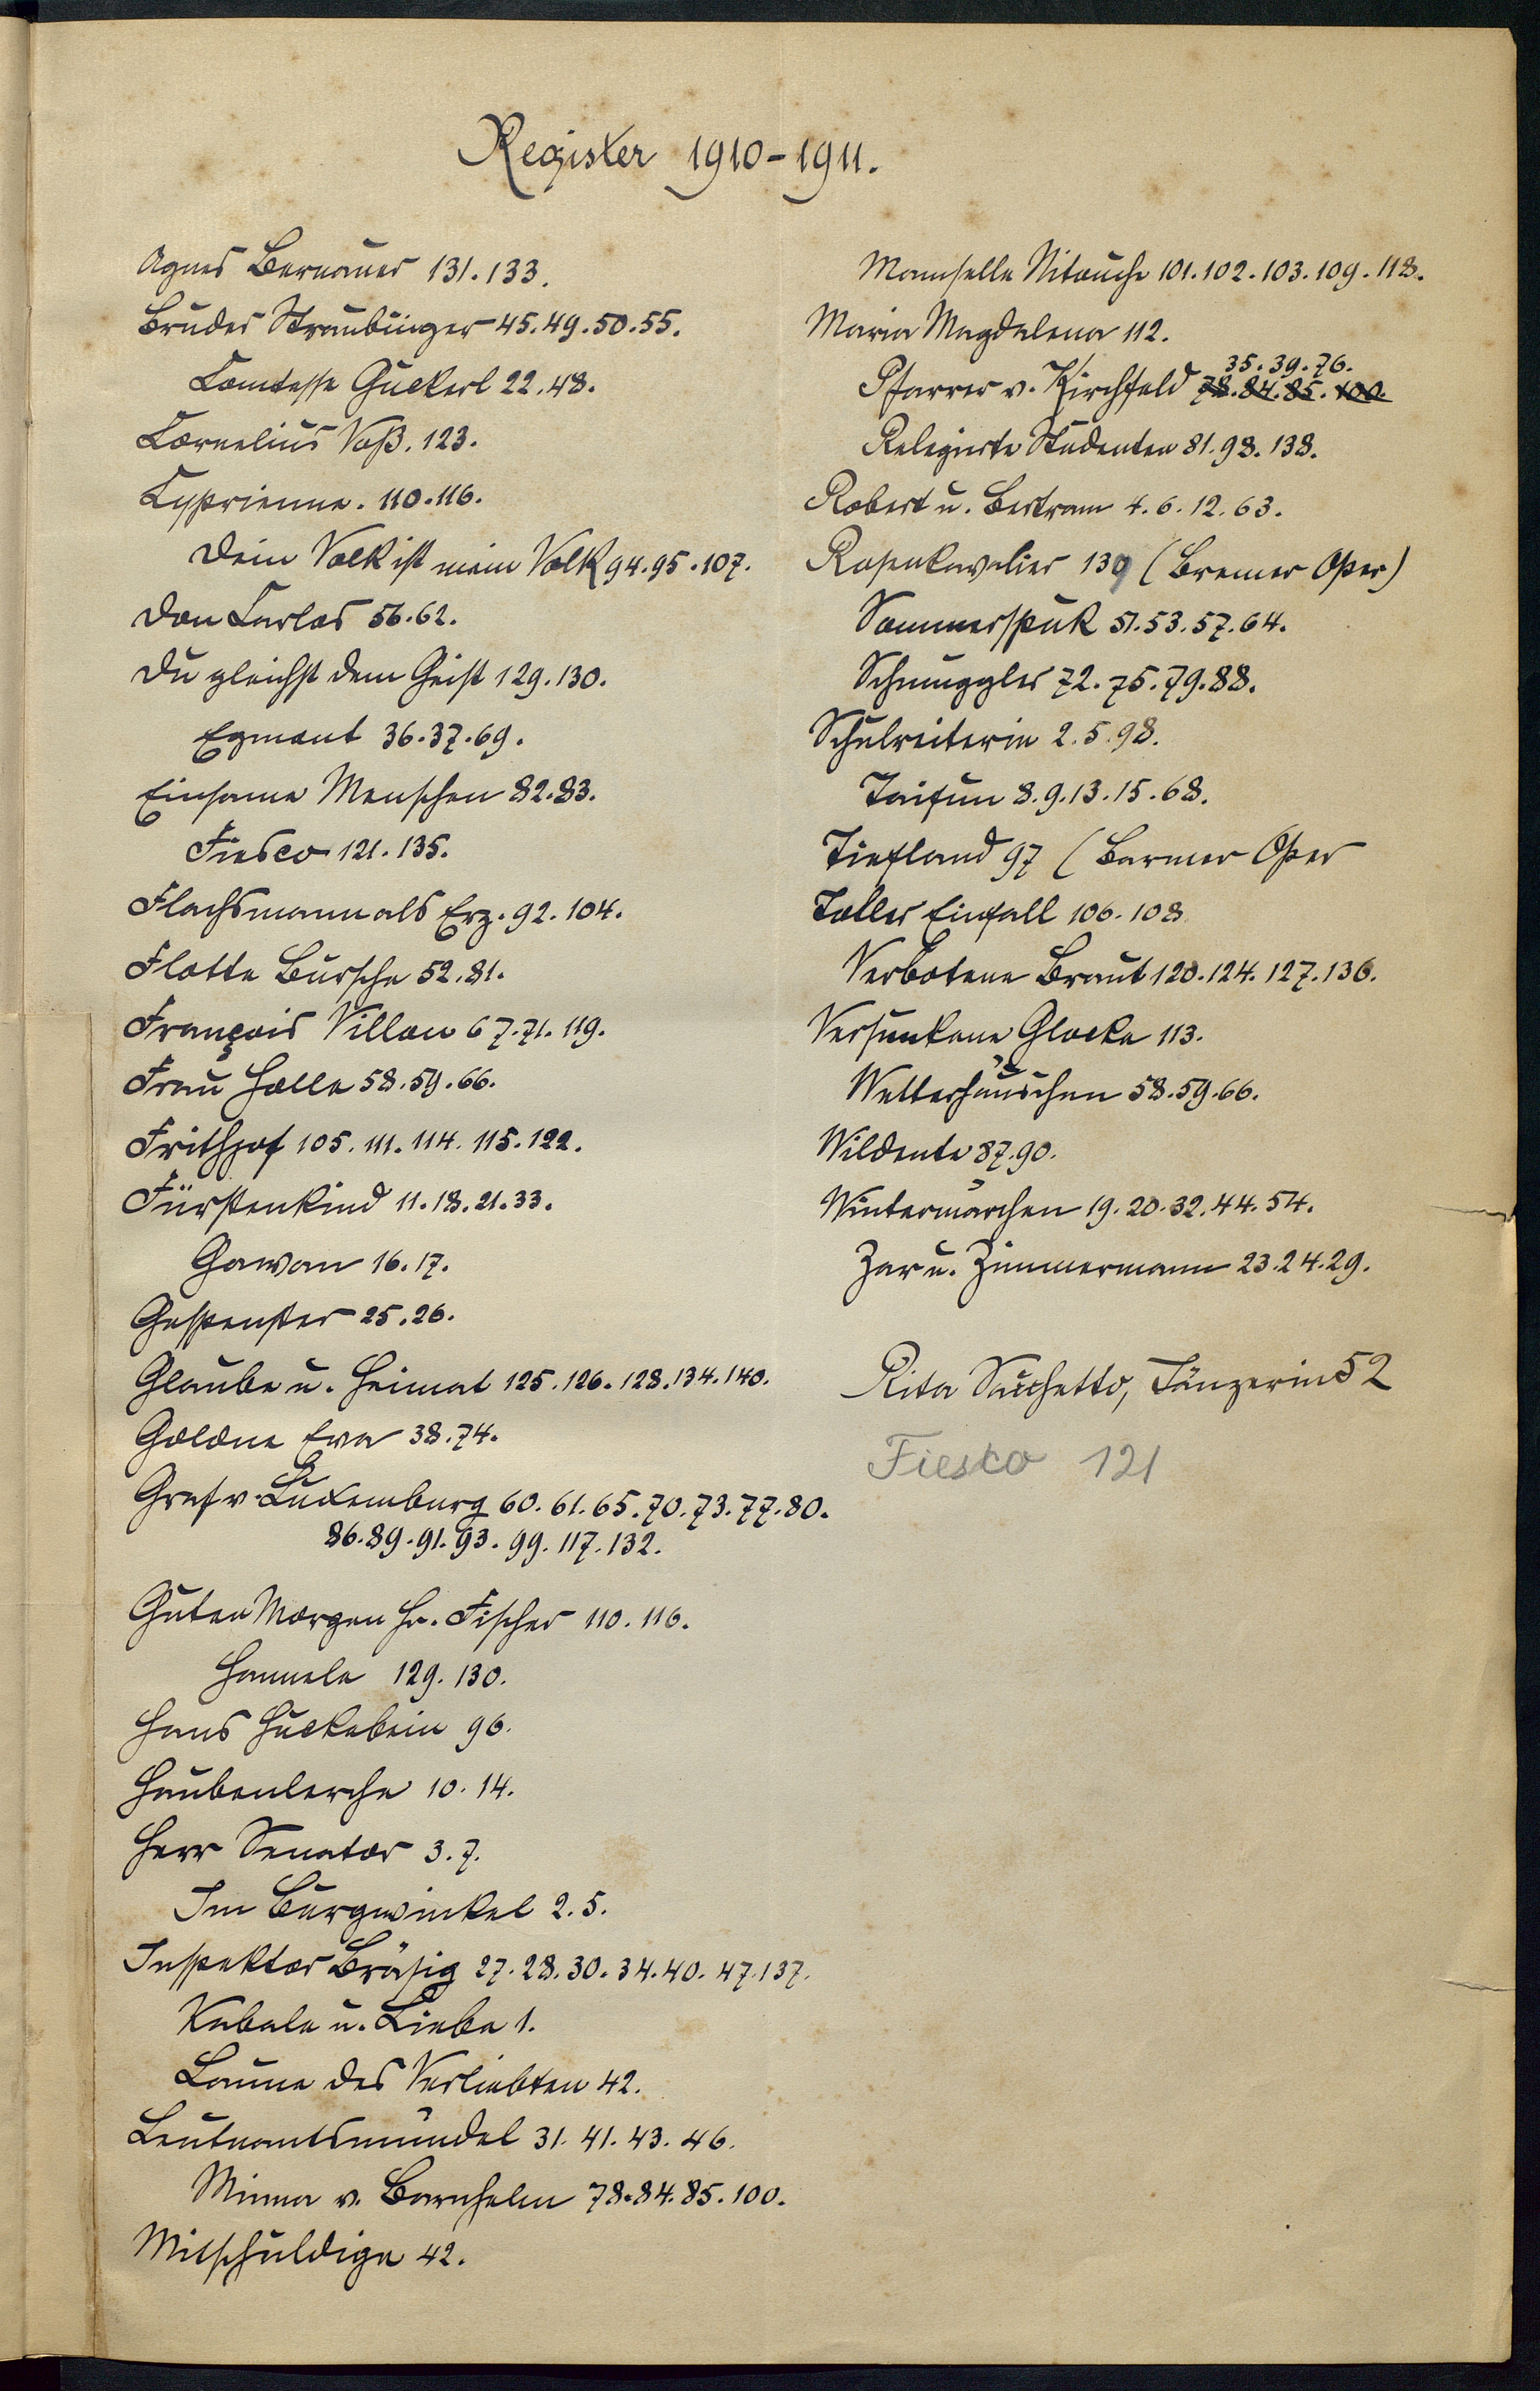 Register 1910-1911.
Agnes Bernauer 131. 133.
Bruder Straubinger 45. 49. 50. 55.
Comtesse Guckerl 22. 48.
Cornelius Voß. 123.
Cyprienne. 110. 116.
Dein Volk ist mein Volk 94. 95. 107.
Don Carlos 56. 62.
Du gleichst dem Geist 129. 130.
Egmont 36. 37. 69.
Einsame Menschen 82. 83.
Fiesco 121. 135.
Flachsmann als Erz. 92. 104.
Flotte Bursche 52. 81.
François Villon 67. 71. 119.
Frau Holle 58. 59. 66.
Frithjof 105. 111. 114. 115. 122.
Fürstenkind 11. 18. 21. 33.
Gawan 16. 17.
Gespenster 25. 26.
Glaube u. Heimat 125. 126. 128. 134. 140.
Goldne Eva 38. 74.
Graf v. Luxemburg 60. 61. 65. 70. 73. 77. 80.
86. 89. 91. 93. 99. 117. 132.
Guten Morgen Hr. Fischer 110. 116.
Hannele 129. 130.
Hans Huckebein 96.
Haubenlerche 10. 14.
Herr Senator 3. 7.
Im Burgwinkel 2. 5.
Inspektor Bräsig 27. 28. 30. 34. 40. 47. 137.
Kabale u. Liebe 1.
Laune des Verliebten 42.
Leutnantsmündel 31. 41. 43. 46.
Minna v. Barnhelm 78. 84. 85. 100.
Mitschuldige 42.
Mamselle Nitouche 101. 102. 103. 109. 118.
Maria Magdalena 112.
35. 39. 76.
Pfarrer v. Kirchfeld 78. 84. 85. 100.
Relegierte Studenten 81. 98. 138.
Robert u. Bertram 4. 6. 12. 63.
Rosenkavalier 139 (Bremer Oper)
Sommerspuk 51. 53. 57. 64.
Schmuggler 72. 75. 79. 88.
Schulreiterin 2. 5. 98.
Taifun 8. 9. 13. 15. 68.
Tiefland 97 (Barmer Oper
Toller Einfall 106. 108
Verbotene Braut 120. 124. 127. 136.
Versunkene Glocke 113.
Wetterhäuschen 58. 59. 66.
Wildente 87. 90.
Wintermärchen 19. 20. 32. 44. 54.
Zar u. Zimmermann 23. 24. 29.
Rita Sacchetto, Tänzerin 52
Fiesko 121